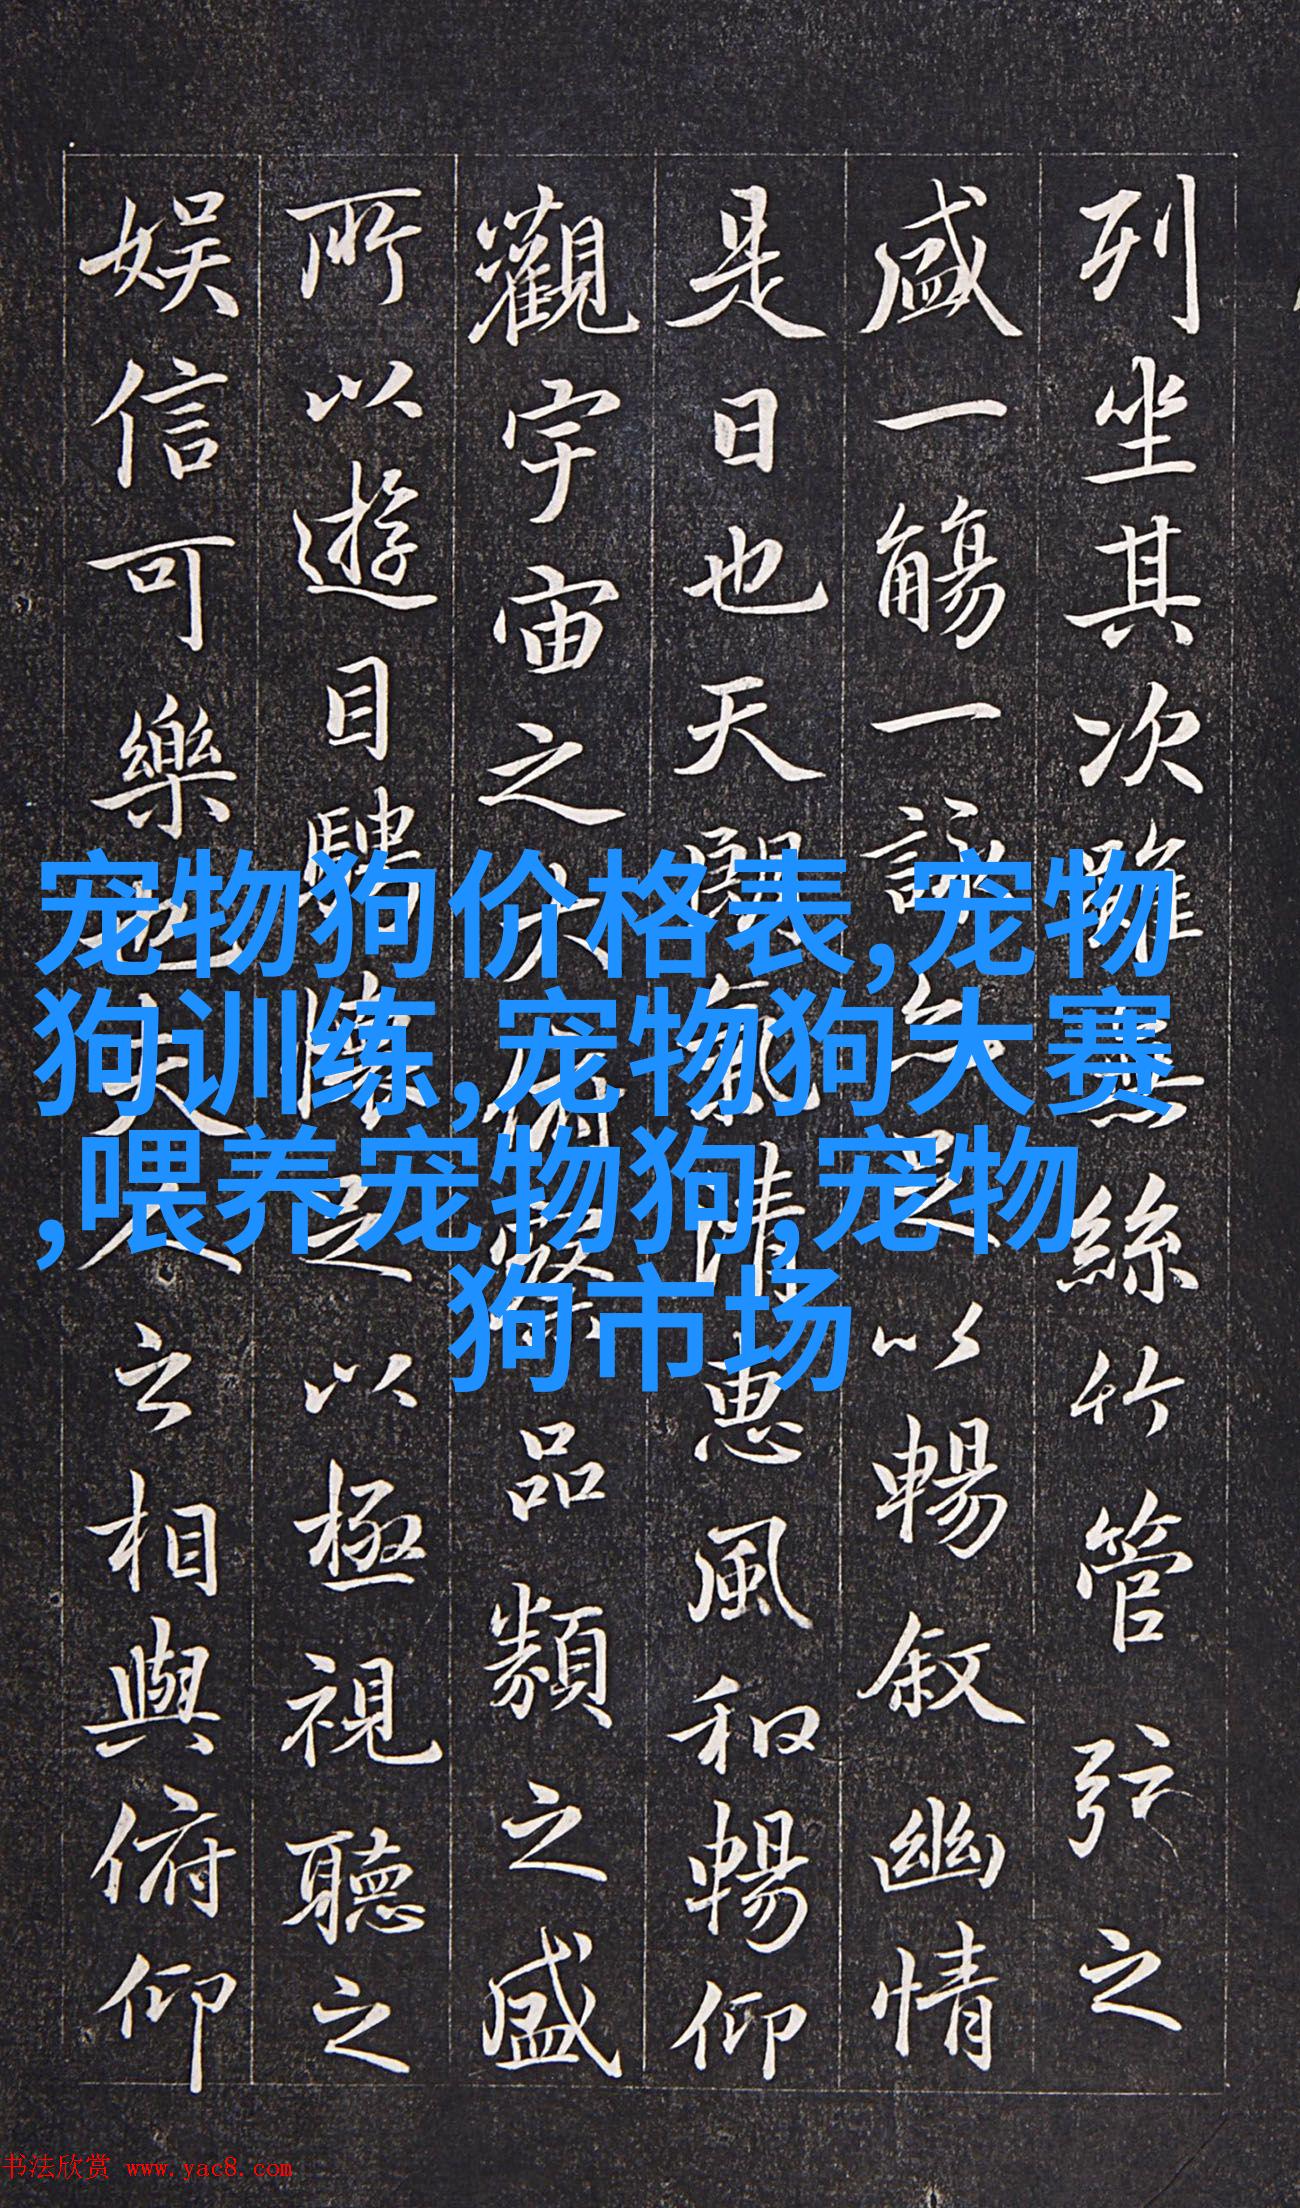 列坐其次雖無絲竹管弦之
盛一觴一詠亦足以暢敘幽情
是日也天朗氣清惠風和暢仰
觀宇宙之大俯察品類之盛
所以遊目騁懷足以極視聽之
娛信可樂也夫人之相與俯仰
宠物狗价格表,宠物
狗训练,宠物狗大赛
,喂养宠物狗,宠物
狗市场
书法欣赏 www.yac8.com